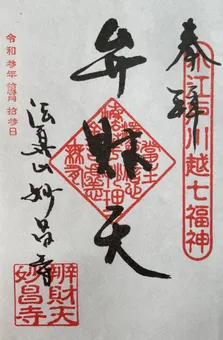 奉拝
小江戸川越七福神
弁財天
法真山妙昌寺
辨財天
妙昌寺
令和参年